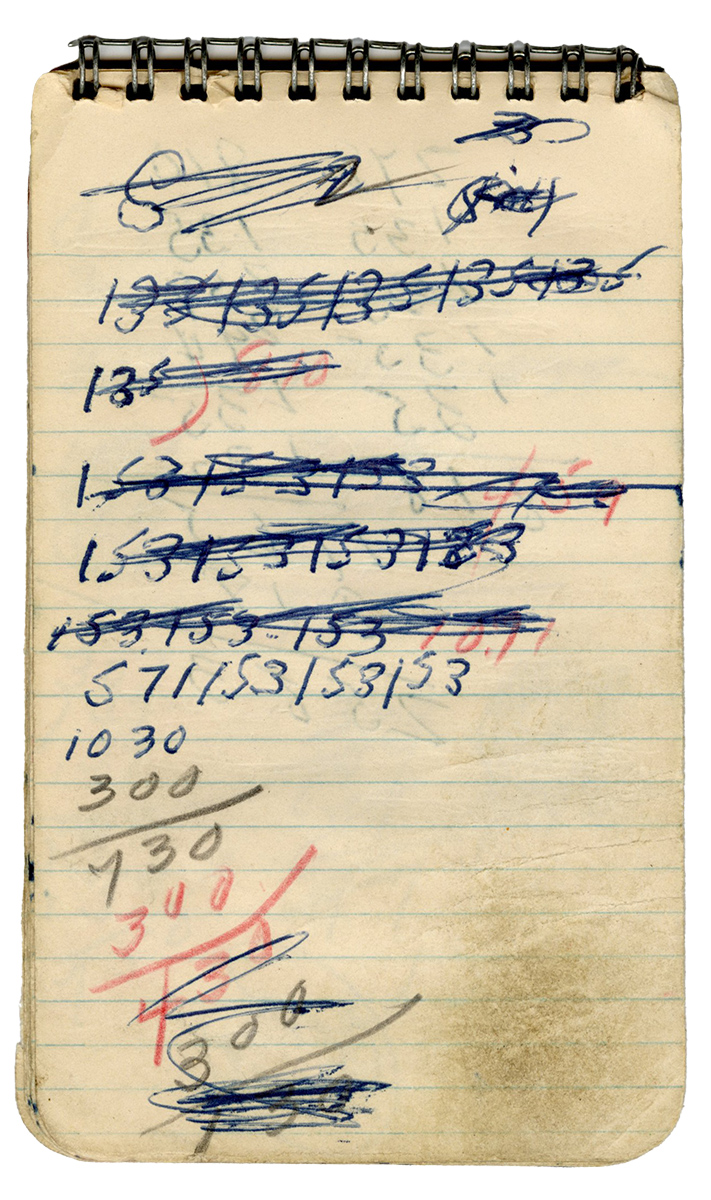 135 135 135 135 135
135 810
153 153 153 459
153 153 153 153
153 153 153 10.71
571 153 153 153
1030
300
730
300
430
300
130